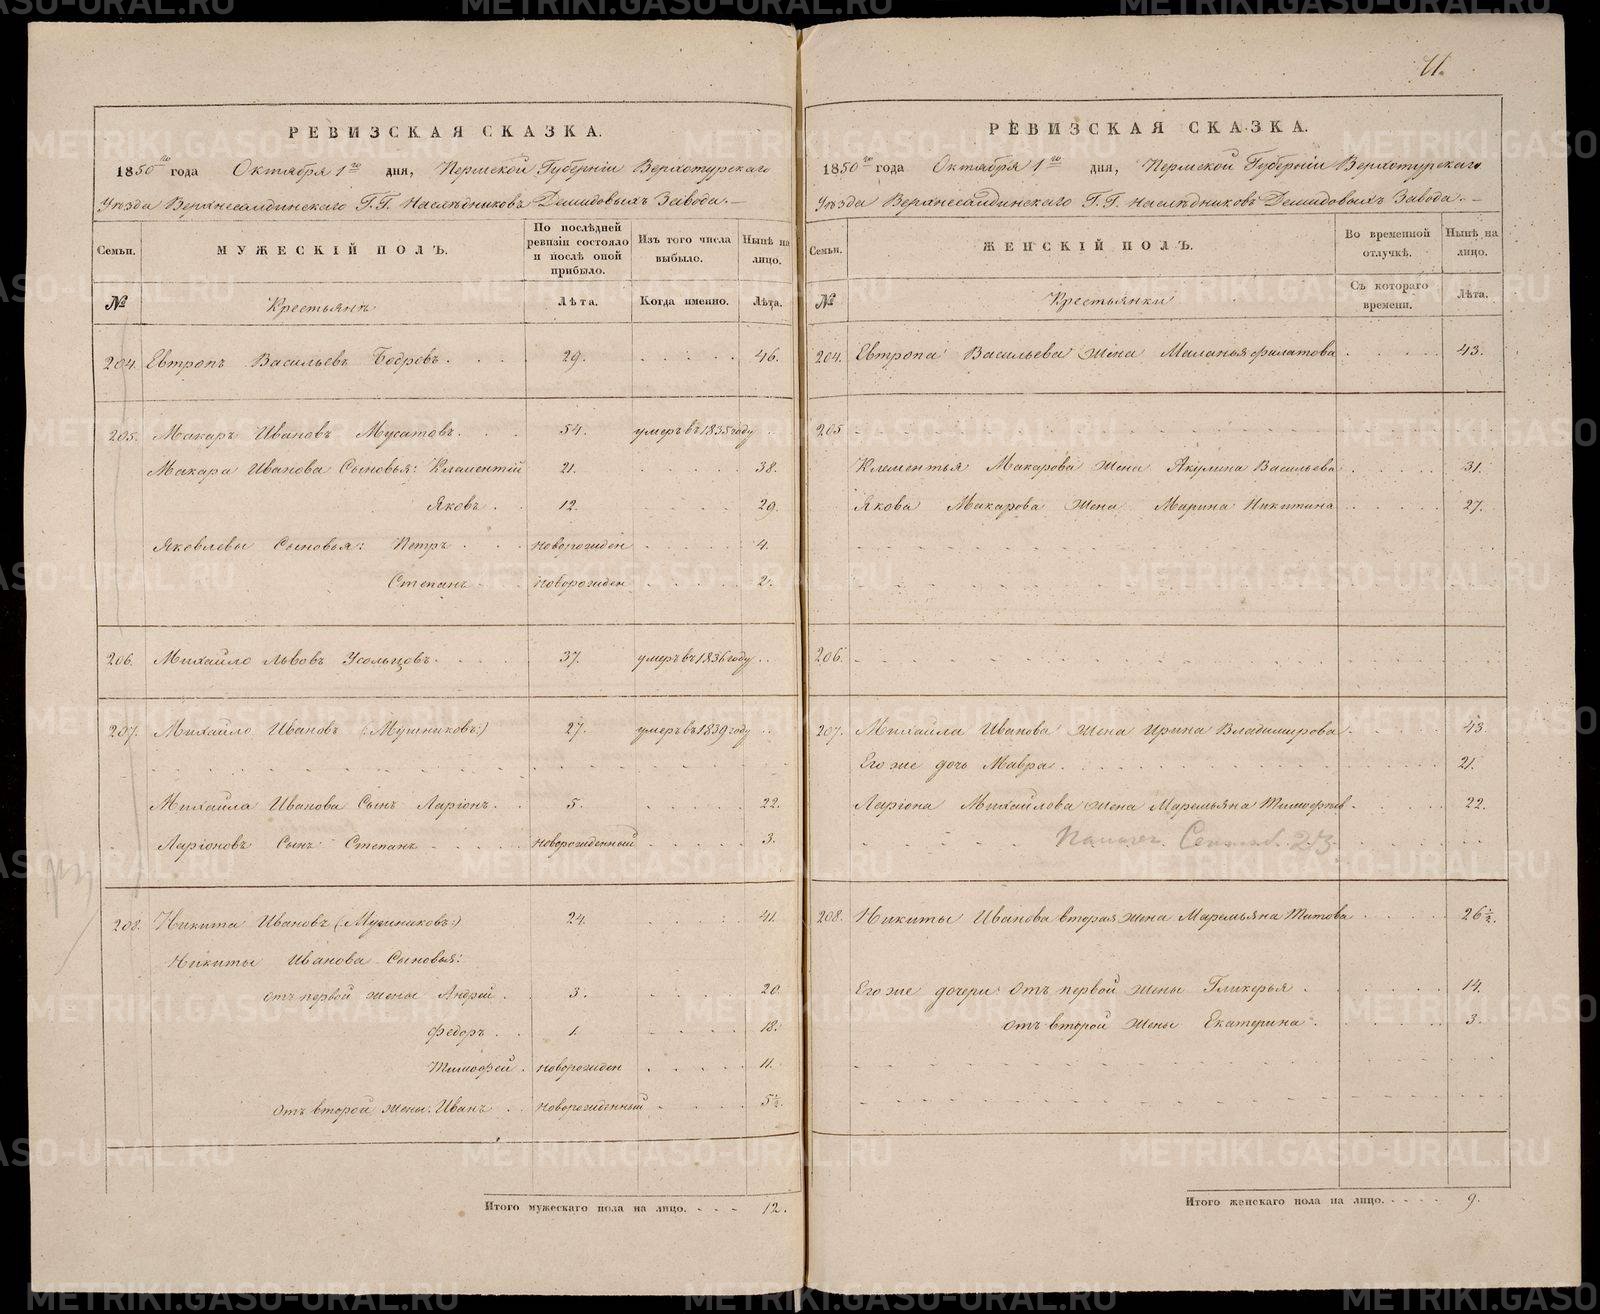 РЕВИЗСКАЯ СКАЗКА.
1850го года Октября 1го дня, Пермской Губерніи Верхотурскаго
Уѣзда Верхнесалдинскаго Г.Г. Наслѣдниковъ Демидовыхъ Завода.
Семьи. МУЖЕСКІЙ ПОЛЪ. По послѣдней ревизіи состояло и послѣ оной прибыло. Изъ того числа выбыло. Нынѣ на лицо.
№ Крестьянъ Лѣта. Когда именно. Лѣта.
204. Евтропъ Васильевъ Бобровъ. 29. 46.
205. Макаръ Ивановъ Мусатовъ. 54. умеръ въ 1835 году
Макара Иванова Сыновья: Клементій 21. 38.
Яковъ. 12. 29.
Яковлевы Сыновья: Петръ новорожден 4.
Степанъ новорожден 2.
206. Михайло Львовъ Усольцовъ. 37. умеръ въ 1836 году
207. Михайло Ивановъ (Мушниковъ:) 27. умеръ въ 1839 году
Михайла Иванова Сынъ Ларіонъ. 5. 22.
Ларіоновъ Сынъ Степанъ новорожденный 3.
208. Никита Ивановъ (Мушниковъ:) 24. 41.
Никиты Иванова Сыновья:
отъ первой жены Андрей 3. 20.
Федоръ 1. 18.
Тимофей новорожден 11.
отъ второй жены: Иванъ новорожденный 5½.
Итого мужескаго пола на лицо. 12.
РЕВИЗСКАЯ СКАЗКА.
1850го года Октября 1го дня, Пермской Губерніи Верхотурскаго
Уѣзда Верхнесалдинскаго Г.Г. Наслѣдниковъ Демидовыхъ Завода.
Семьи. ЖЕНСКІЙ ПОЛЪ. Во временной отлучкѣ. Нынѣ на лицо.
№ Крестьянки Съ котораго времени. Лѣта.
204. Евтропа Васильева жена Маланья Филатова 43.
205
Клементья Макарова жена Акулина Васильева 31.
Якова Макарова жена Марина Никитина 27.
206.
207. Михайла Иванова жена Ирина Владимирова 43.
Его же дочь Мавра. 21.
Ларіона Михайлова жена Маремьяна Тимофеева. 22.
208. Никиты Иванова вторая жена Маремьяна Титова 26½.
Его же дочери: отъ первой жены Гликерья 14.
отъ второй жены Екатерина 3.
Итого женскаго пола на лицо. 9.
METRIKI.GASO-URAL.RU